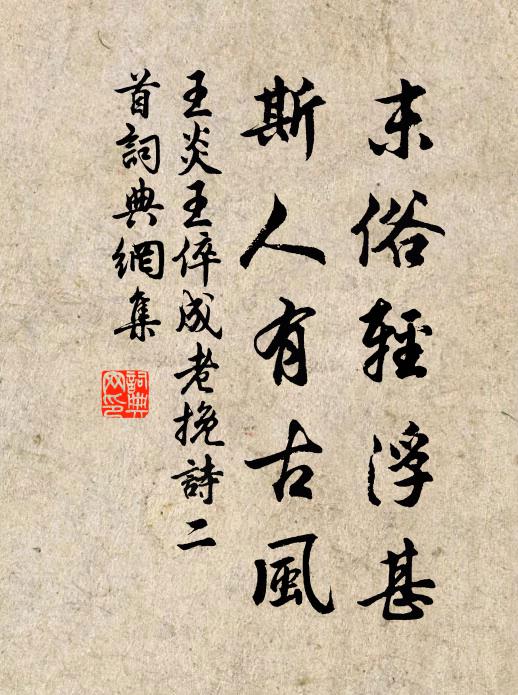 末俗輕浮甚
斯人有古風
王炎王倅成老挽詩二
首詞典網集
詞典
網印